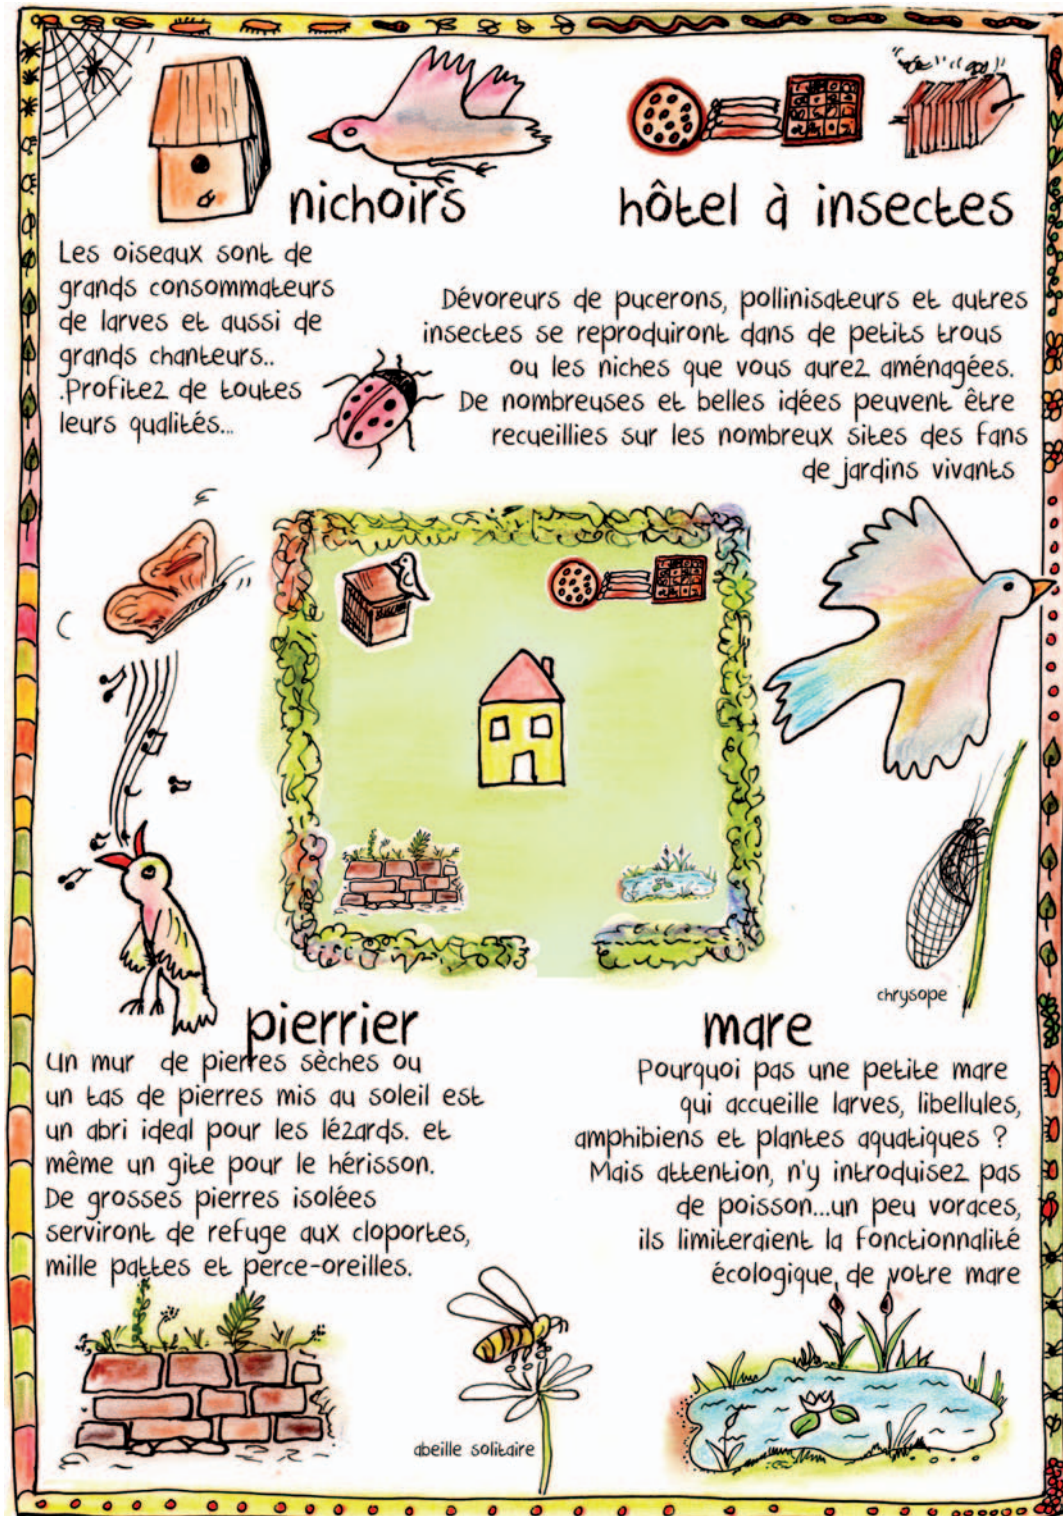 nichoirs
Les oiseaux sont de
grands consommateurs
de larves et aussi de
grands chanteurs..
.Profitez de toutes
leurs qualités...
hôtel à insectes
Dévoreurs de pucerons, pollinisateurs et autres
insectes se reproduiront dans de petits trous
ou les niches que vous aurez aménagées.
De nombreuses et belles idées peuvent être
recueillies sur les nombreux sites des fans
de jardins vivants
chrysope
pierrier
Un mur de pierres sèches ou
un tas de pierres mis au soleil est
un abri ideal pour les lézards. et
même un gite pour le hérisson.
De grosses pierres isolées
serviront de refuge aux cloportes,
mille pattes et perce-oreilles.
mare
Pourquoi pas une petite mare
qui accueille larves, libellules,
amphibiens et plantes aquatiques ?
Mais attention, n'y introduisez pas
de poisson...un peu voraces,
ils limiteraient la fonctionnalité
écologique de votre mare
abeille solitaire